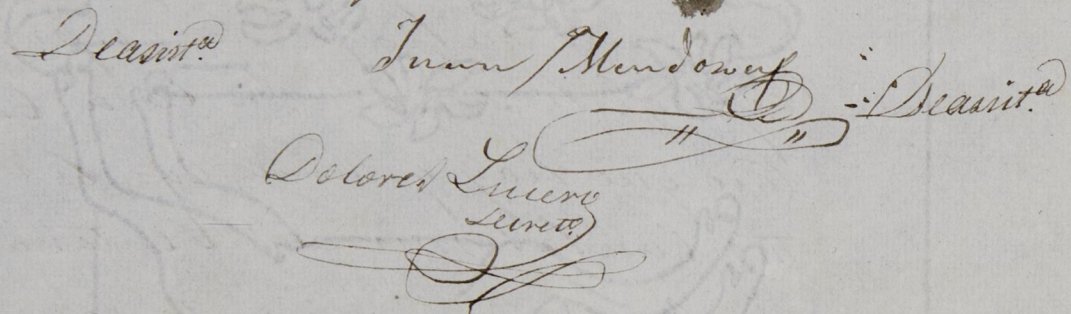 De asist.ª Juan Mendoza De asist.ª
Dolores Lucero
Secret.º